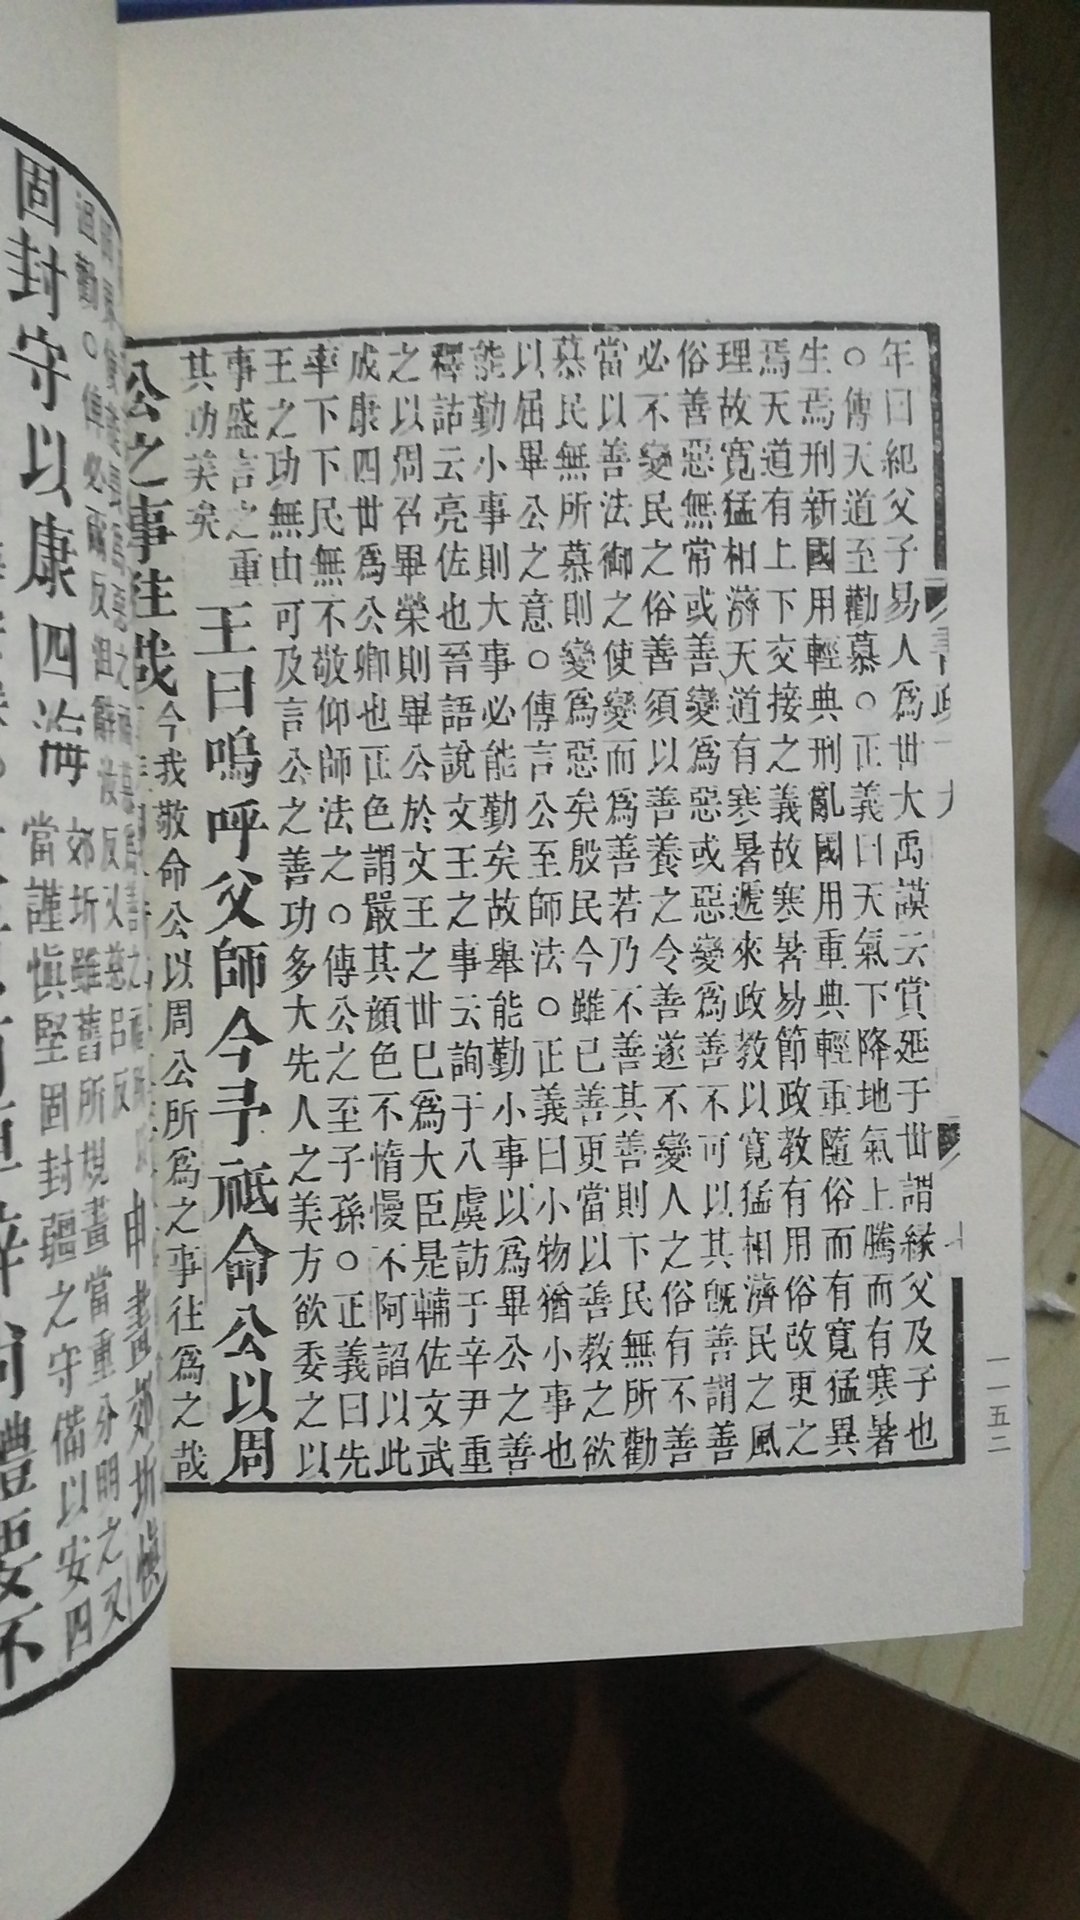 年曰紀父子易人爲丗大禹謨云賞延于丗謂緣父及子也
○傳天道至勸慕○正義曰天氣下降地氣上騰而有寒暑
生焉刑新國用輕典刑亂國用重典輕重隨俗而有寬猛異
焉天道有上下交接之義故寒暑易節政教有用俗改更之
理故寬猛相濟天道有寒暑遞來政教以寬猛相濟民之風
俗善惡無常或善變爲惡或惡變爲善不可以其旣善謂善
必不變民之俗善須以善養之令善遂不變人之俗有不善
當以善法御之使變而爲善若乃不善其善則下民無所勸
慕民無所慕則變爲惡矣殷民今雖已善更當以善教之欲
以屈畢公之意○傳言公至師法○正義曰小物猶小事也
能勤小事則大事必能勤矣故舉能勤小事以爲畢公之善
釋詁云亮佐也晉語說文王之事云詢于八虞訪于辛尹重
之以周召畢榮則畢公於文王之丗已爲大臣是輔佐文武
成康四丗爲公卿也正色謂嚴其顔色不惰慢不阿諂以此
率下下民無不敬仰師法之○傳公之至子孫○正義曰先
王之功無由可及言公之善功多大先人之美方欲委之以
事盛言之重
其功美矣
王曰嗚呼父師今予祗命公以周
公之事往哉
今我敬命公以周公所爲之事往爲之哉
申畫郊圻慎
固封守以康四海
郊圻雖舊所規畫當重分明之又
當謹慎堅固封疆之守備以安四
一一五二